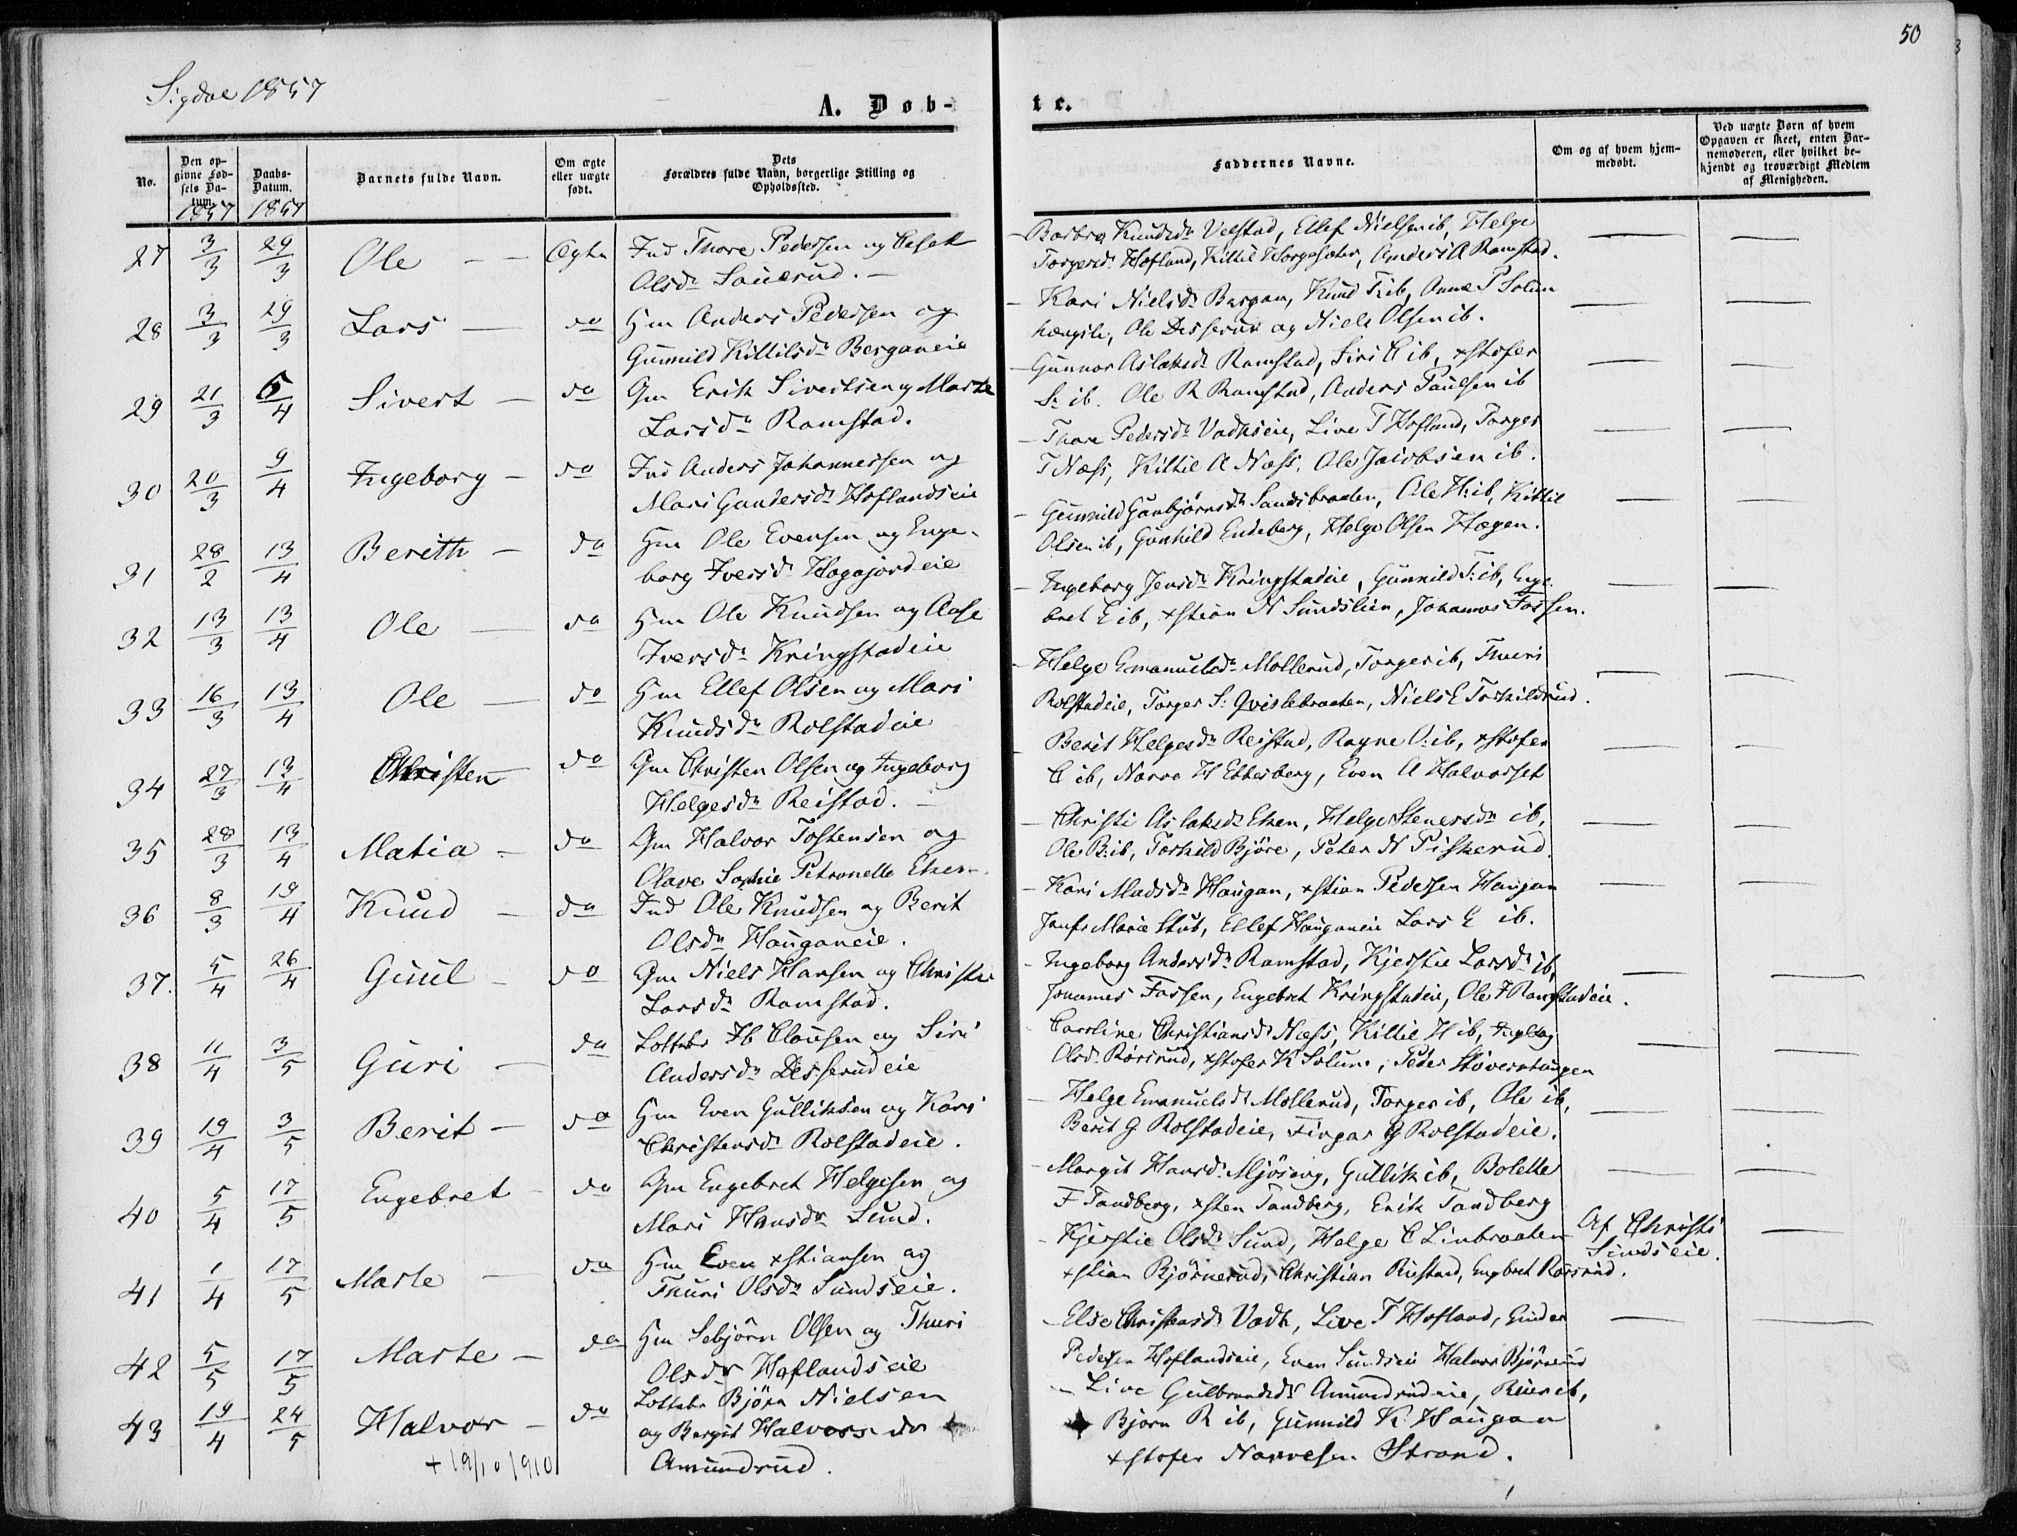 50
Sigdal 1857
A. Døb-
te.
No.
Den op-
givne Fød-
sels Da-
tum.
1857
Daabs-
Datum.
1857
Barnets fulde Navn.
Om ægte
eller uægte
født.
Dets
Forældres fulde Navn, borgerlige Stilling og
Opholdssted.
Faddernes Navne.
Om og af hvem hjem-
medøbt.
Ved uægte Børn af hvem
Opgaven er skeet, enten Bar-
nemoderen, eller hvilket be-
kjendt og troværdigt Medlem
af Menigheden.
27 3/3 29/3 Ole — Ægte Ind Thore Pedersen og
Olsdr
Barbro Knudsdr Velstad, Ellef Nielsen ib, Helge
Torgersdr Hofland, Kittil Anders A Ramstad.
28 3/3 29/3 Lars — do Hm Anders Pedersen og
Gunnild Kittilsdr Berganeie
Kari Nielsdr Bergan, Knud T: ib, Anne P Solum
Ole Desserud og Niels Olsen ib.
29 21/3 5/4 Sivert — do Gm Erik Sivertsen og Marte
Larsdr Ramstad.
Gunnor Aslaksdr Ramstad, Siri C ib, xstofer
S: ib. Ole R Ramstad, Anders Paulsen ib
30 20/3 9/4 Ingeborg — do Ind Anders Johannessen og
Mari Gundersdr Hoflandseie
Thore Pedersdr Vadkseie, Live T Hofland, Torger
T Næss, Kittil A Næss, Ole Jacobsen ib.
31 28/2 13/4 Berith — do Hm Ole Evensen og Enge-
borg Iversdr Hagajordeie
Gunnild Gunbjørnsdr Sandsbraaten, Ole H: ib, Kittil
Olsen ib, Gunhild Endeberg, Helge Olsen Hagen.
32 13/3 13/4 Ole — do Hm Ole Knudsen og Aase
Iversdr Kringstadeie
Ingeborg Jensdr Kringstadeie, Gunnild T: ib, Enge-
bret E ib, xstian N Sundslien, Johannes Fossen.
33 16/3 13/4 Ole — do Hm Ellef Olsen og Mari
Knudsdr Rolstadeie
Helge Emanuelsdr Mollerud, Torger ib, Thuri
Rolstadeie, Torger S: Qvislebraaten, Niels E Torkildrud.
34 27/3 13/4 Christen do Gm Christen Olsen og Ingeborg
Helgesdr Reistad. —
Berit Helgesdr Reistad, Ragne O: ib, xstofer
C ib, Narve H Ettesberg, Even A Halvorset
35 28/3 13/4 Matia — do Gm Halvor Tostensen og
Olave Sophie Petronelle Eken
Christi Aslaksdr Eken, Helge Stenersdr ib,
Ole B: ib, Torkild Bjøre, Peter N Piskerud.
36 8/3 19/4 Knud — do Ind Ole Knudsen og Berit
Olsdr Hauganeie.
Kari Madsdr Haugan, xstian Pedersen Haugan
Jomfr Marie Stub, Ellef Hauganeie Lars E ib.
37. 5/4 26/4 Guul — do Gm Niels Hansen og Christi
Larsdr Ramstad.
Ingeborg Andersdr Ramstad, Kjerstie Larsdr ib,
Johannes Fossen, Engebret Kringstadeie, Ole F Ramstadeie.
38 11/4 3/5 Guri — do Lottebr Ib Clausen og Siri
Andersdr Desserudeie
Caroline Christiansdr Næss, Kittil H ib, Ingeborg
Olsdr Rørsrud, xstofer K Solum, Peder Støvernhaugen
39 19/4 3/5 Berit — do Hm Even Gulliksen og Kari
Christensdr Rolstadeie.
Helge Emanuelsdr Mollerud, Torger ib, Ole ib,
Berit G Rolstadeie, Fingar G Rolstadeie.
40 5/4 17/5 Engebret — do Gm Engebret Helgesen og
Mari Hansdr Lund.
Margit Hansdr Mjøseng, Gullik ib, Bolette
F Tandberg, xsten Tandberg, Erik Tandberg
41 1/4 17/5 Marte — do Hm Even xstiansen og
Thuri Olsdr Sundseie.
Kjerstie Olsdr Sund, Helge C Linbraaten
xstian Bjørnerud, Christian Riistad, Engebret Rørsrud.
Af Christi
Sundseie.
42 5/5 17/5 Marte — do Hm Sebjørn Olsen og Thuri
Olsdr Hoflandseie
Else Christensdr Vadk, Live T Hofland, Gunder
Pedersen Hoflandseie, Even Sundseie Halvor Bjørnerud
43 19/4 24/5 Halvor — do Lottebr Bjørn Nielsen
og Bergit Halvorsdr
Amundrud.
+ 19/10 1910
Live Gulbrandsdr Amundrudeie, ib,
Bjørn R ib, Gunnild K Haugan
xstofer Narvesen Strand.